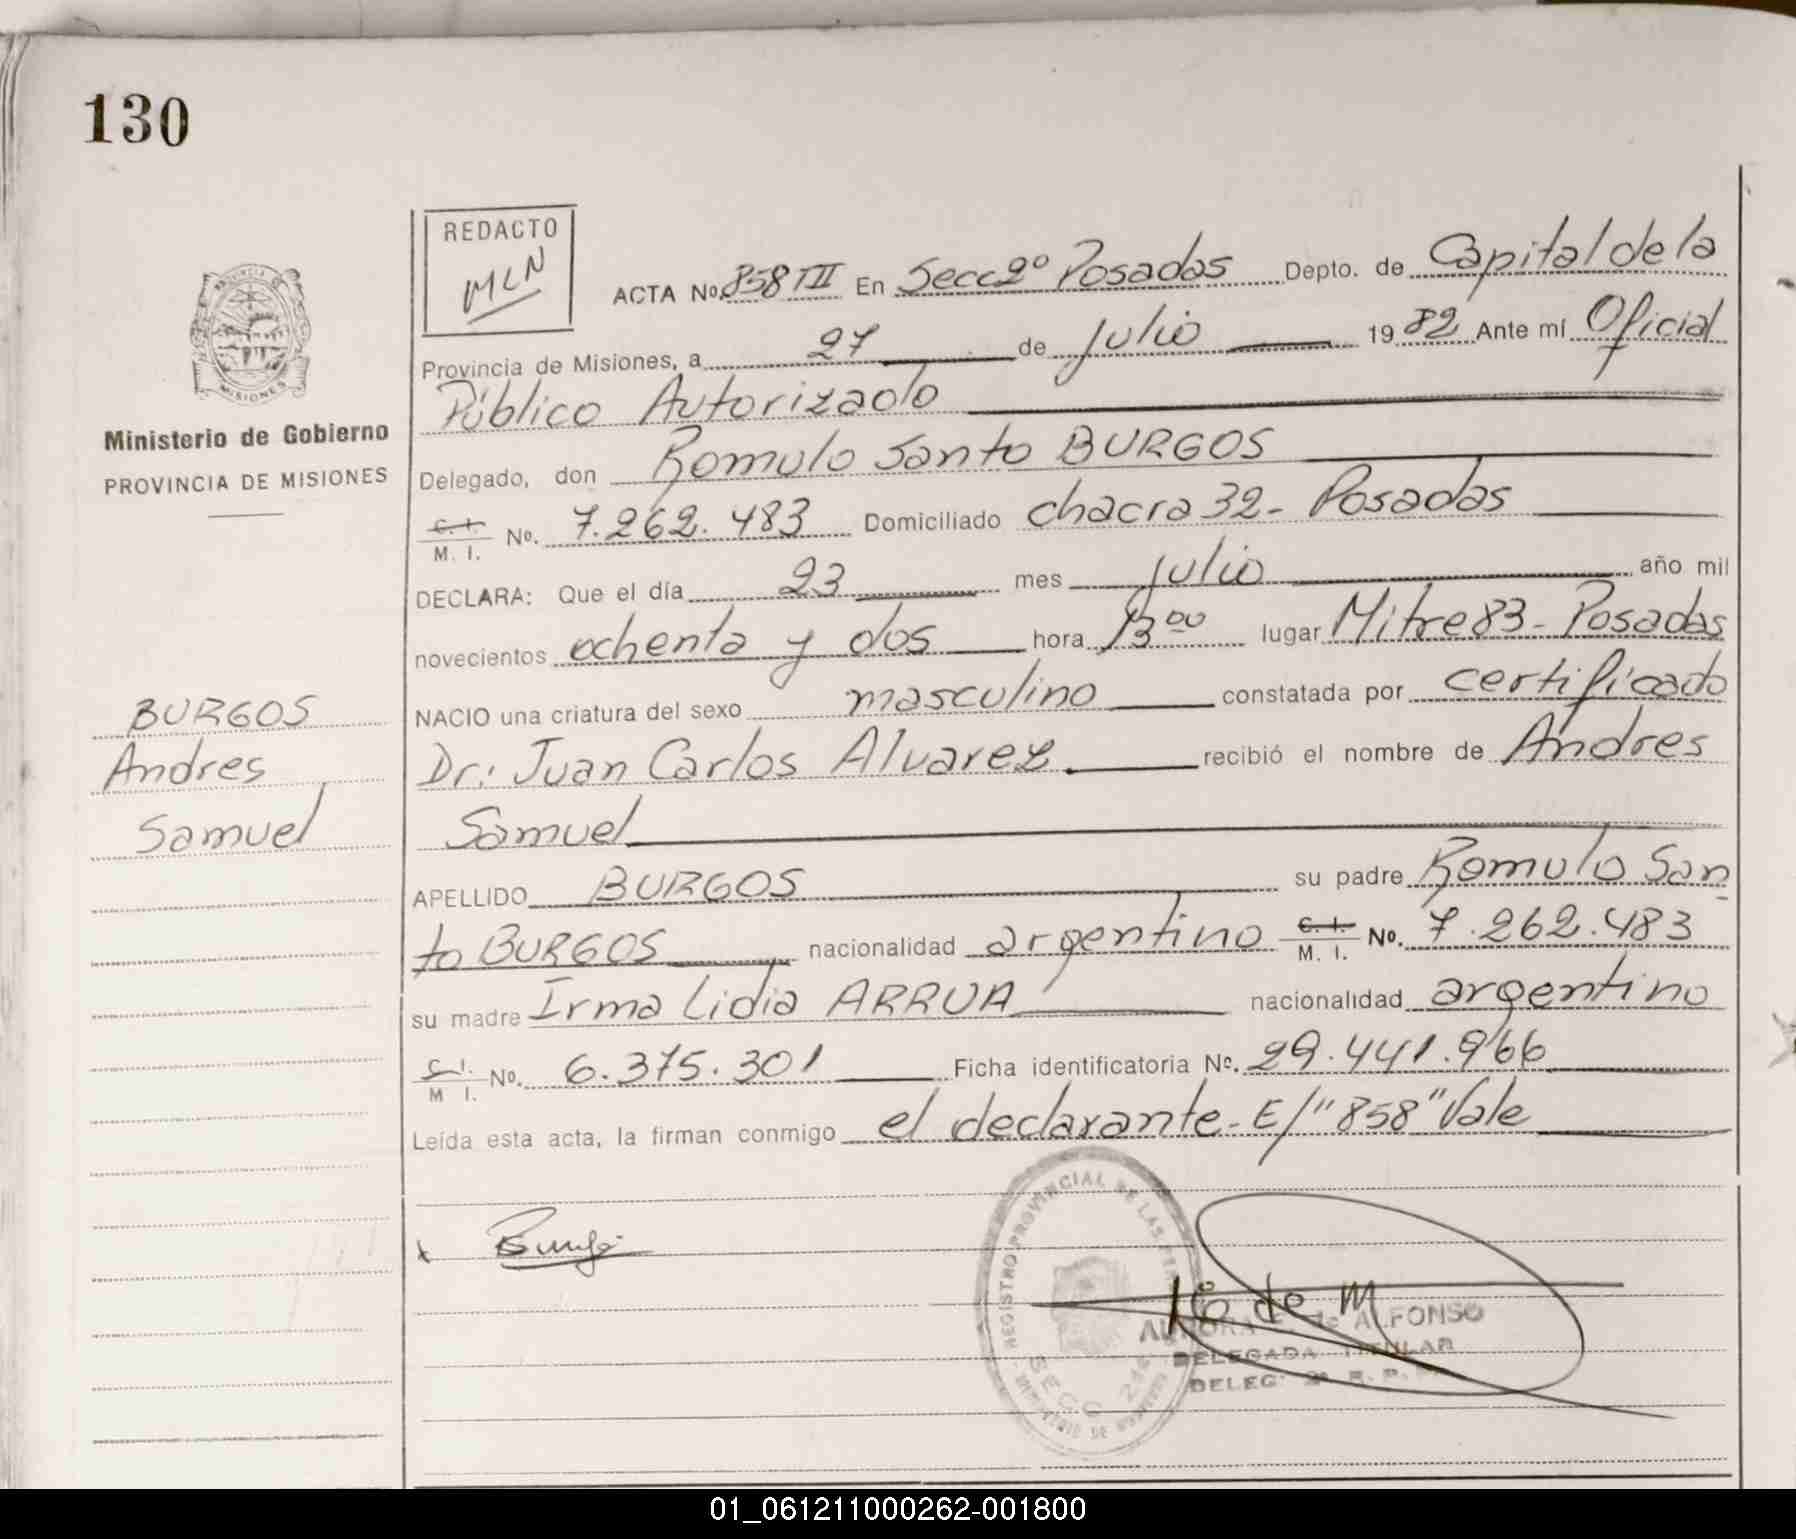 130
REDACTO
MLN
PROVINCIA DE
MISIONES
Ministerio de Gobierno
PROVINCIA DE MISIONES
BURGOS
Andres
Samuel
ACTA No. 858 III En Secc 2º Posadas Depto. de Capital de la
Provincia de Misiones, a 27 de julio 1982 Ante mí Oficial
Público Autorizado
Delegado, don Romulo Santo BURGOS
C. I. / M. I. No. 7.262.483 Domiciliado chacra 32 - Posadas
DECLARA: Que el día 23 mes julio año mil
novecientos ochenta y dos hora 13 00 lugar Mitre 83 - Posadas
NACIO una criatura del sexo masculino constatada por certificado
Dr: Juan Carlos Alvarez recibió el nombre de Andres
Samuel
APELLIDO BURGOS su padre Romulo San
to BURGOS nacionalidad argentino C. I. / M. I. No. 7.262.483
su madre Irma Lidia ARRUA nacionalidad argentino
C. I. / M. I. No. 6.375.301 Ficha identificatoria No. 29.441.966
Leída esta acta, la firman conmigo el declarante - E/"858" Vale
REGISTRO PROVINCIAL DE LAS
SECC
de ALFONSO
DELEGADA TITULAR
DELEG. 2ª R. P.
01_061211000262-001800